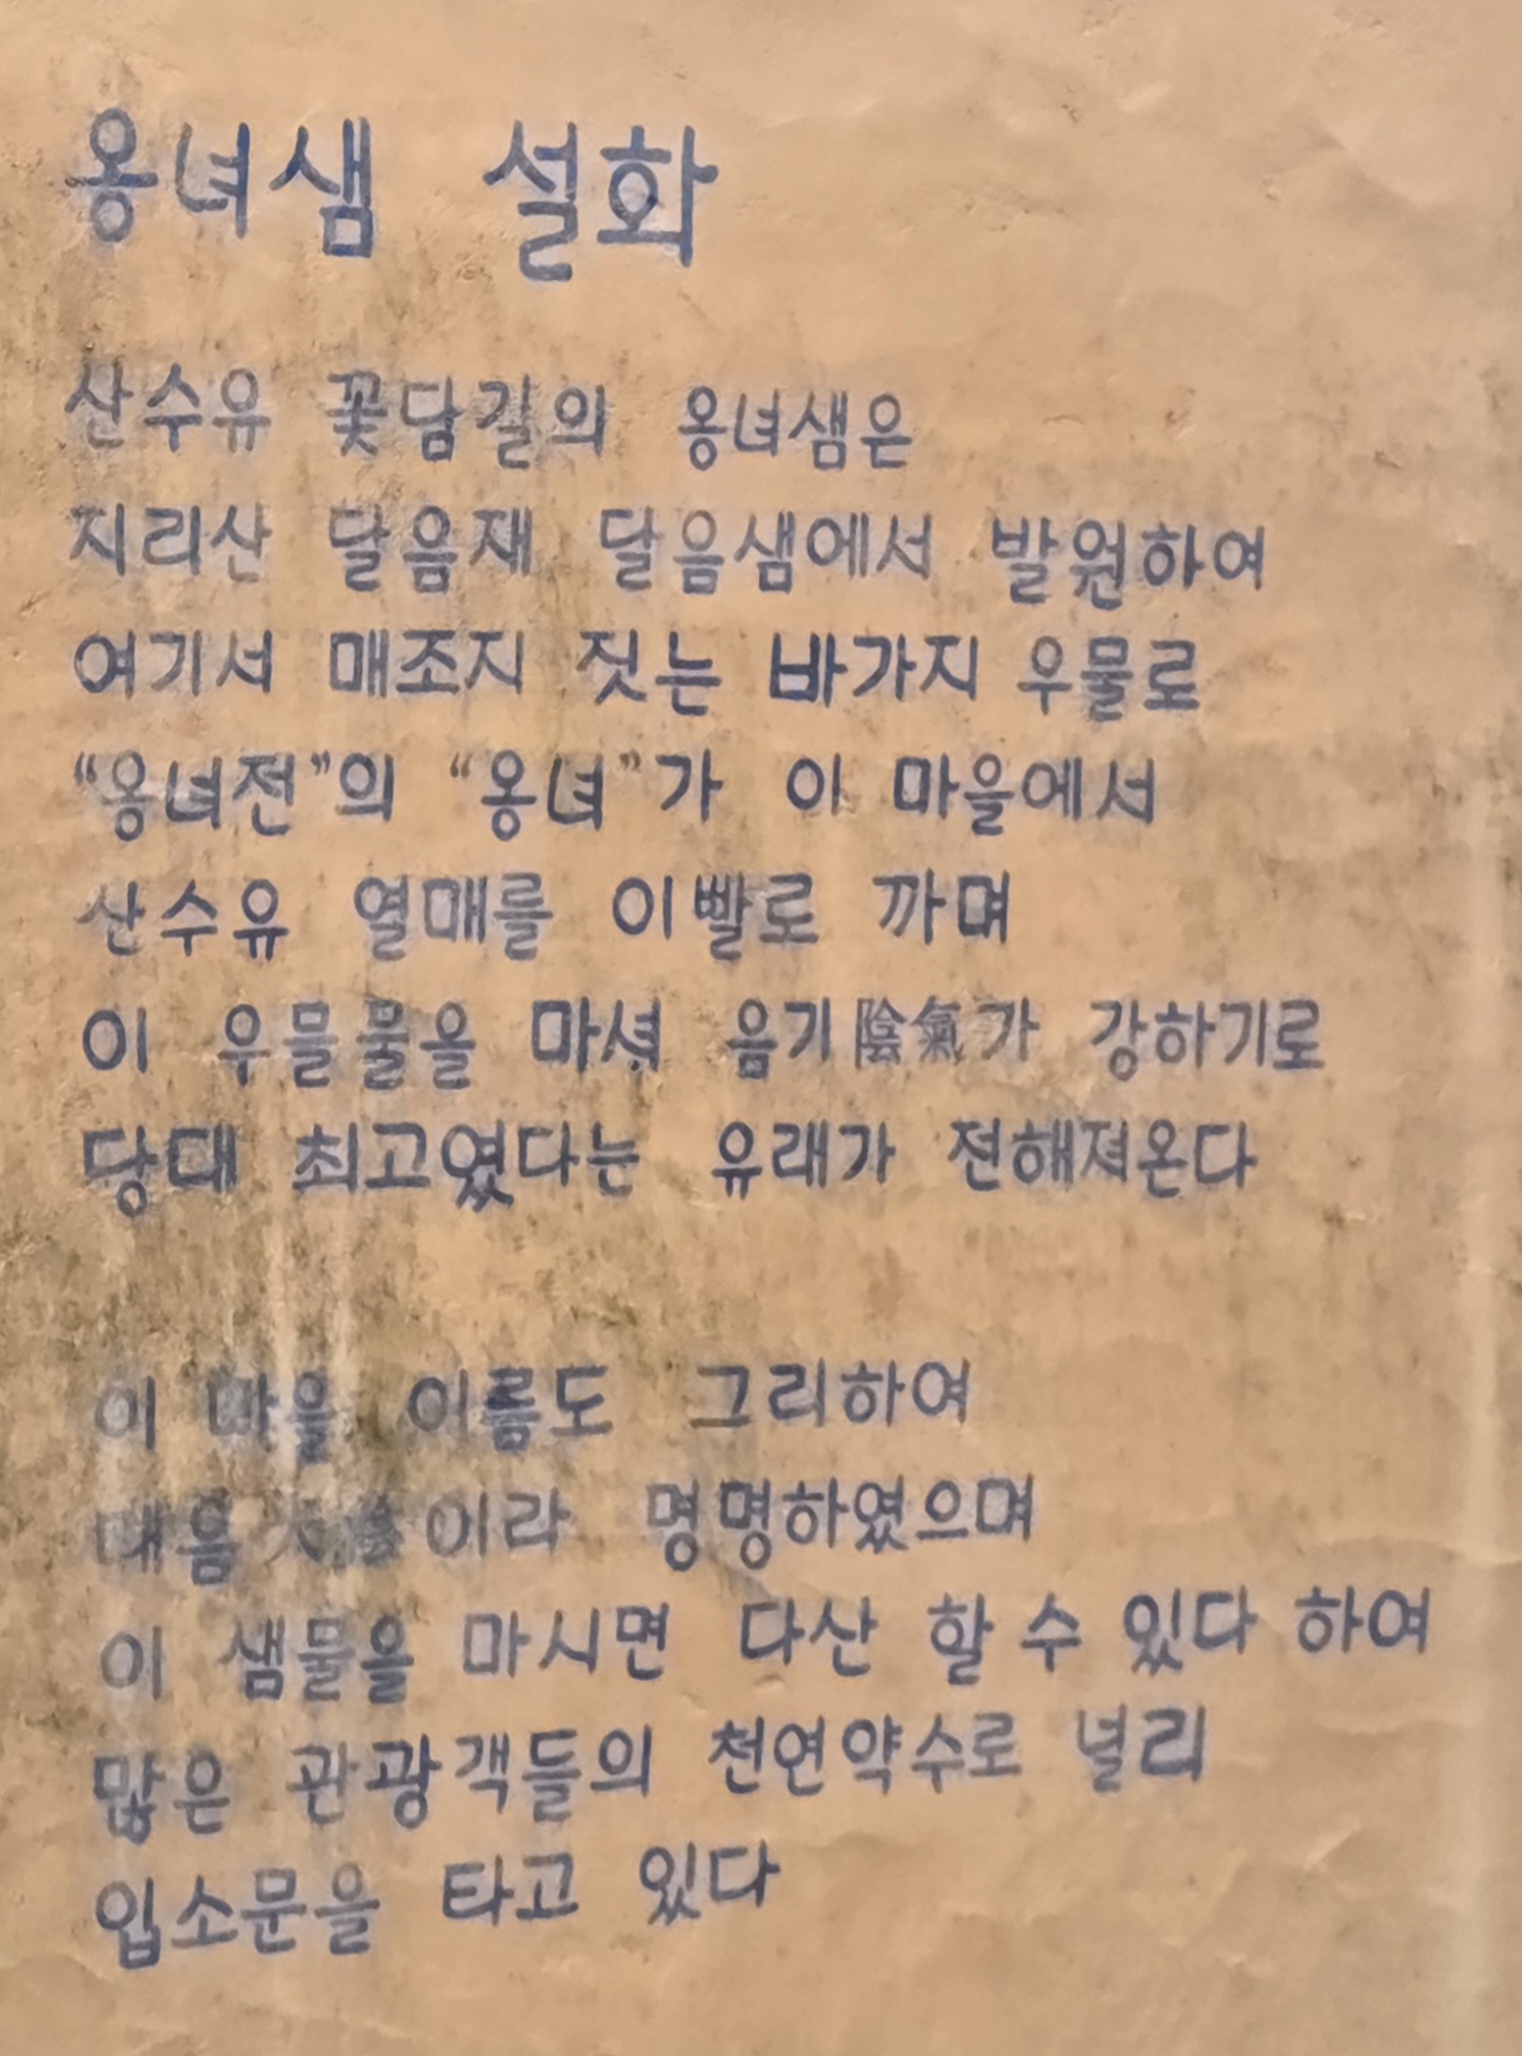 옹녀샘 설화
산수유 꽃담길의 옹녀샘은
지리산 달음재 달음샘에서 발원하여
여기서 매조지 짓는 바가지 우물로
“옹녀전”의 “옹녀”가 이 마을에서
산수유 열매를 이빨로 까며
이 우물물을 마셔 음기陰氣가 강하기로
당대 최고였다는 유래가 전해져온다
이 마을 이름도 그리하여
대음이라 명명하였으며
이 샘물을 마시면 다산 할 수 있다 하여
많은 관광객들의 천연약수로 널리
입소문을 타고 있다